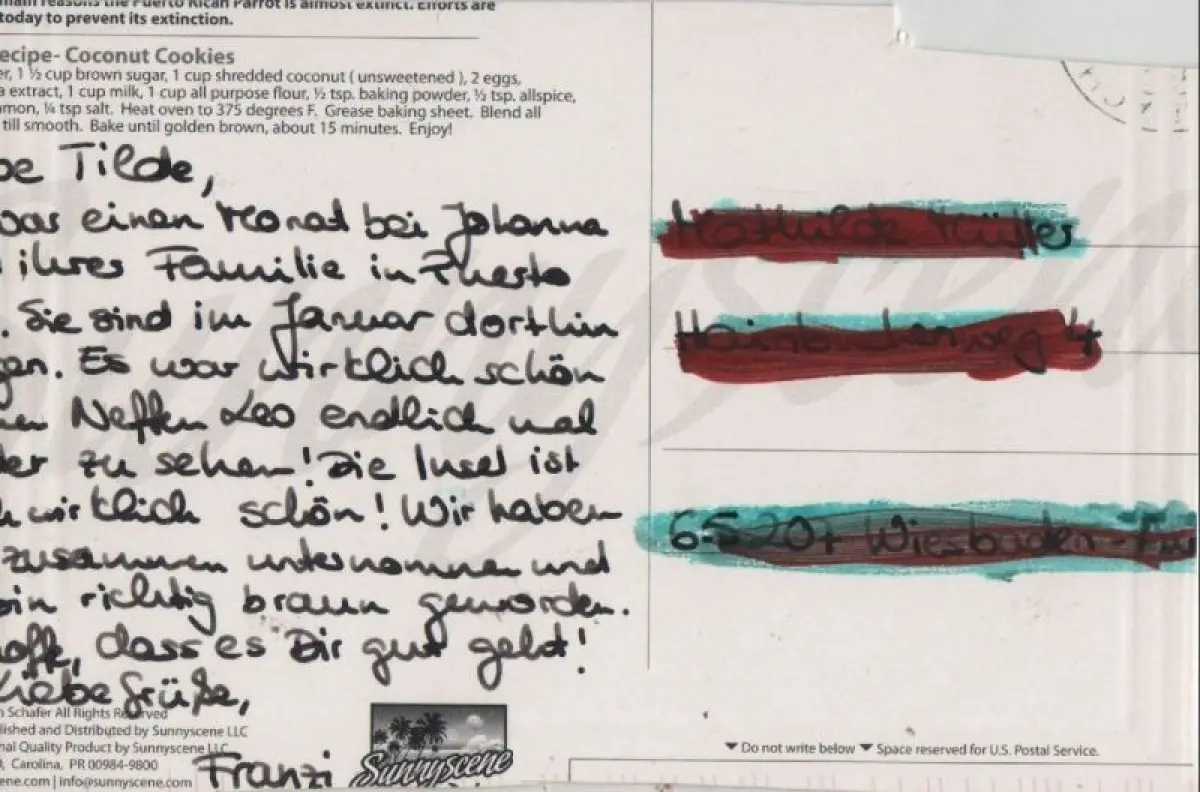 main reasons the Puerto Rican Parrot is almost extinct. Efforts are
today to prevent its extinction.
ecipe- Coconut Cookies
er, 1 ½ cup brown sugar, 1 cup shredded coconut ( unsweetened ), 2 eggs,
a extract, 1 cup milk, 1 cup all purpose flour, ½ tsp. baking powder, ½ tsp. allspice,
mon, ¼ tsp salt. Heat oven to 375 degrees F. Grease baking sheet. Blend all
till smooth. Bake until golden brown, about 15 minutes. Enjoy!
be Tilde,
war einen Monat bei Johanna
ihrer Familie in Puerto
. Sie sind im Januar dorthin
gen. Es war wirklich schön
en Neffen Leo endlich mal
der zu sehen! Die Insel ist
h wirklich schön! Wir haben
zusammen unternommen und
bin richtig braun geworden.
offe, dass es Dir gut geht!
Liebe Grüße,
Franzi
n Schafer All Rights Reserved
lished and Distributed by Sunnyscene LLC
nal Quality Product by Sunnyscene LLC
, Carolina, PR 00984-9800
ene.com | info@sunnyscene.com
Sunnyscene
Do not write below Space reserved for U.S. Postal Service.